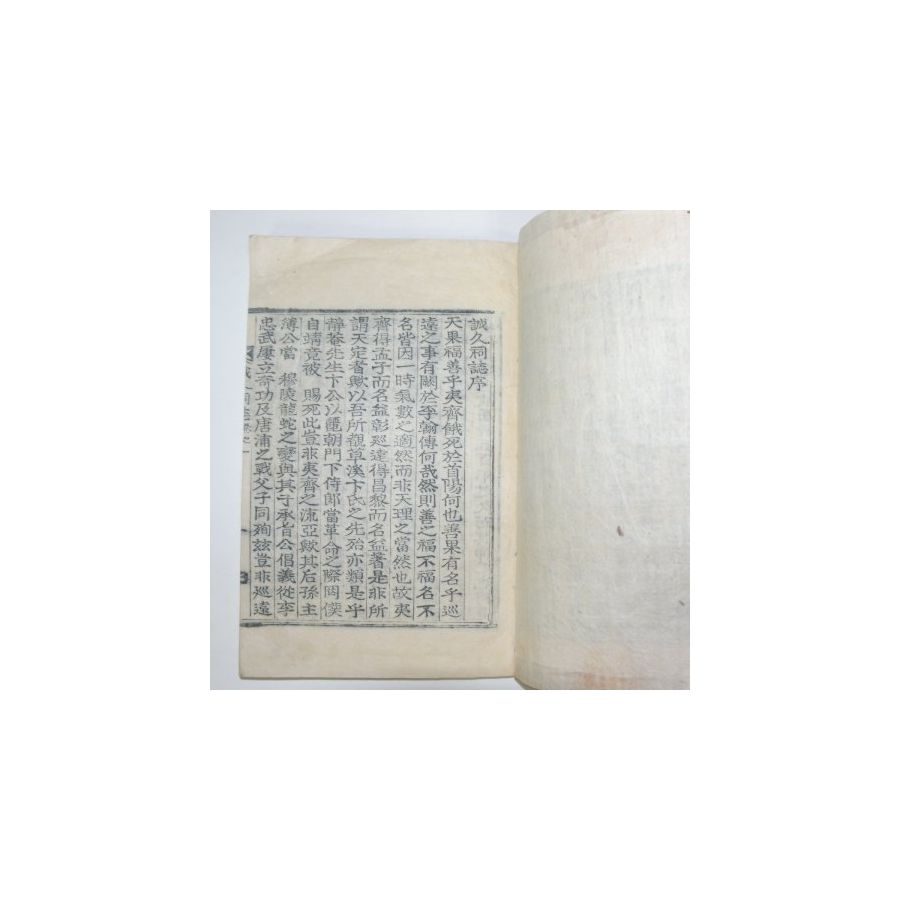 誠久祠誌序
天果福善乎夷齊餓死於首陽何也善果有名乎巡
遠之事有闕於李翰傳何哉然則善之福不福名不
名皆因一時氣數之適然而非天理之當然也故夷
齊得孟子而名益彰巡遠得昌黎而名益著是非所
謂天定者歟以吾所觀草溪卞氏之先殆亦類是乎
靜菴先生卞公以麗朝門下侍郎當革命之際罔僕
自靖竟被 賜死此豈非夷齊之流亞歟其后孫主
簿公當 穆陵龍蛇之變與其子承旨公倡義從李
忠武屢立奇功及唐浦之戰父子同殉玆豈非巡遠